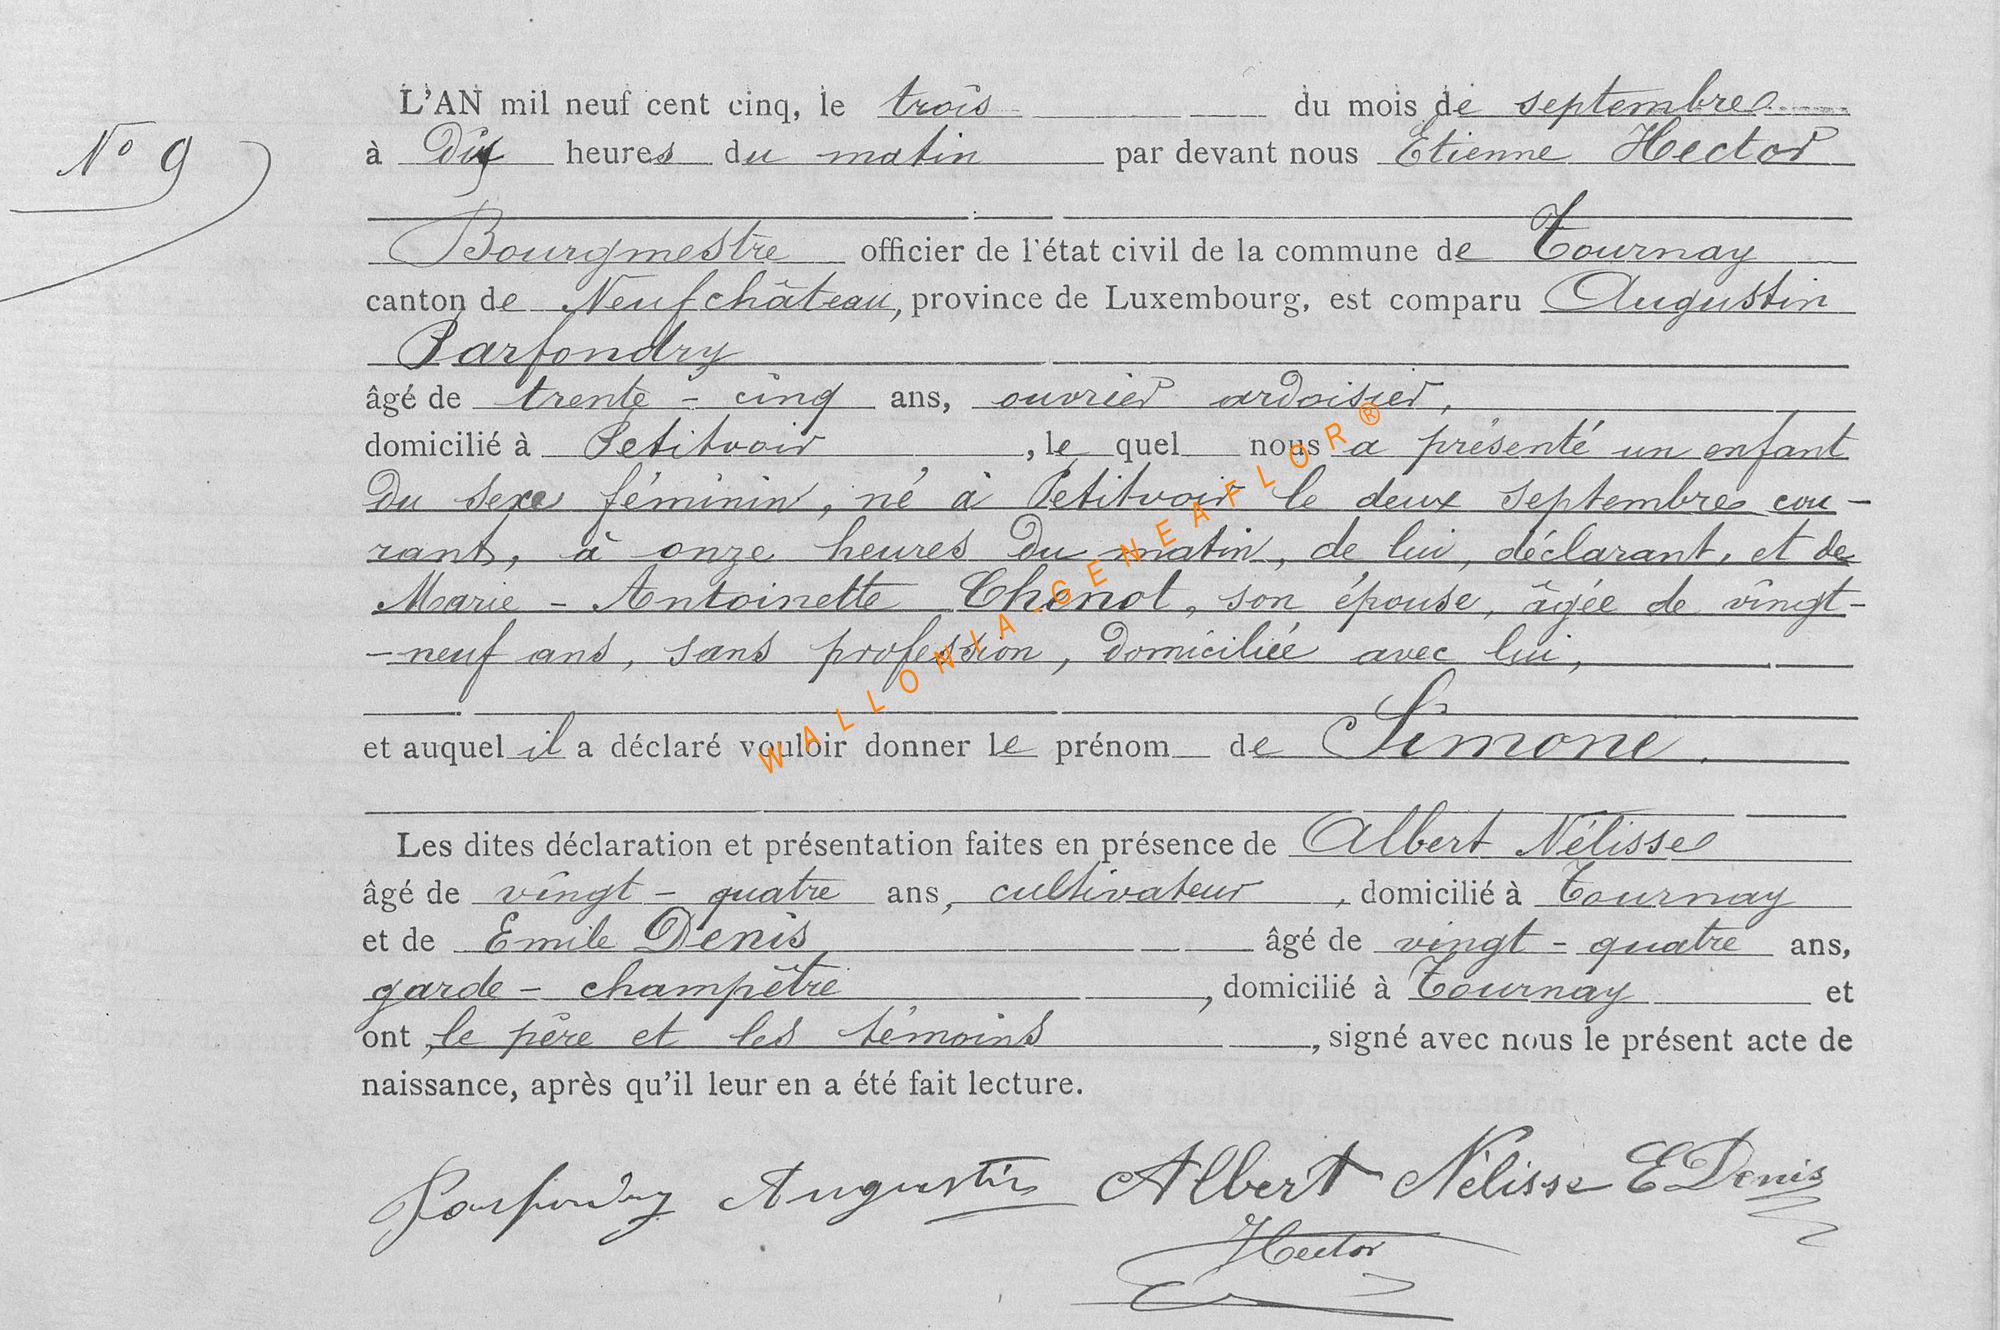 N° 9
L'AN mil neuf cent cinq, le trois du mois de septembre
à Dix heures du matin par devant nous Etienne Hector
Bourgmestre officier de l'état civil de la commune de Tournay
canton de Neufchâteau, province de Luxembourg, est comparu Augustin
Parfondry
âgé de trente-cinq ans, ouvrier ardoisier,
domicilié à Petitvoir, le quel nous a présenté un enfant
du sexe féminin, né à Petitvoir le deux septembre cou-
rant, à onze heures du matin, de lui, déclarant, et de
Marie-Antoinette Chenot, son épouse, âgée de vingt-
-neuf ans, sans profession, domiciliée avec lui,
et auquel il a déclaré vouloir donner le prénom de Simone.
Les dites déclaration et présentation faites en présence de Albert Nélisse
âgé de vingt-quatre ans, cultivateur, domicilié à Tournay
et de Emile Denis âgé de vingt-quatre ans,
garde-champêtre, domicilié à Tournay et
ont, le père et les témoins, signé avec nous le présent acte de
naissance, après qu'il leur en a été fait lecture.
Parfondry Augustin Albert Nélisse E Denis
Hector
WALLONIA.GENEAFLOR®